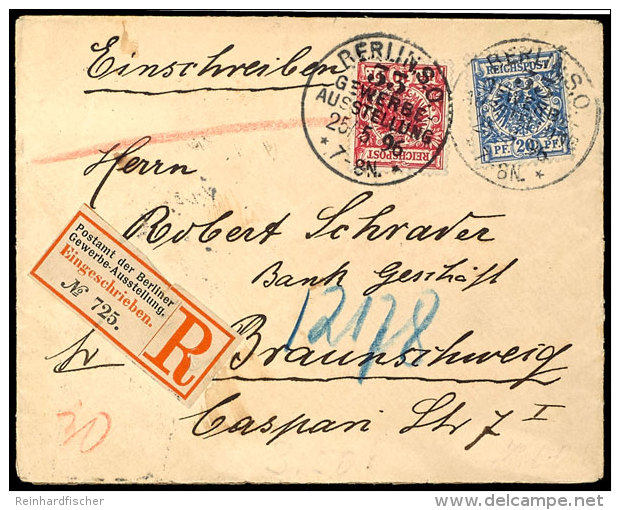 Einschreiben
BERLIN S.O.
33
GEWERBE-
AUSSTELLUNG
25 5 96
* 7-8N. *
REICHSPOST
BERLIN S.O.
REICHSPOST
PF. 20 PF.
-8N. *
Herrn
Robert Schrader
Bank Geschäft
12178
Braunschweig
Caspari Str 7 I
Postamt der Berliner
Gewerbe-Ausstellung.
Eingeschrieben.
№ 725.
R
30
Reinhardfischer